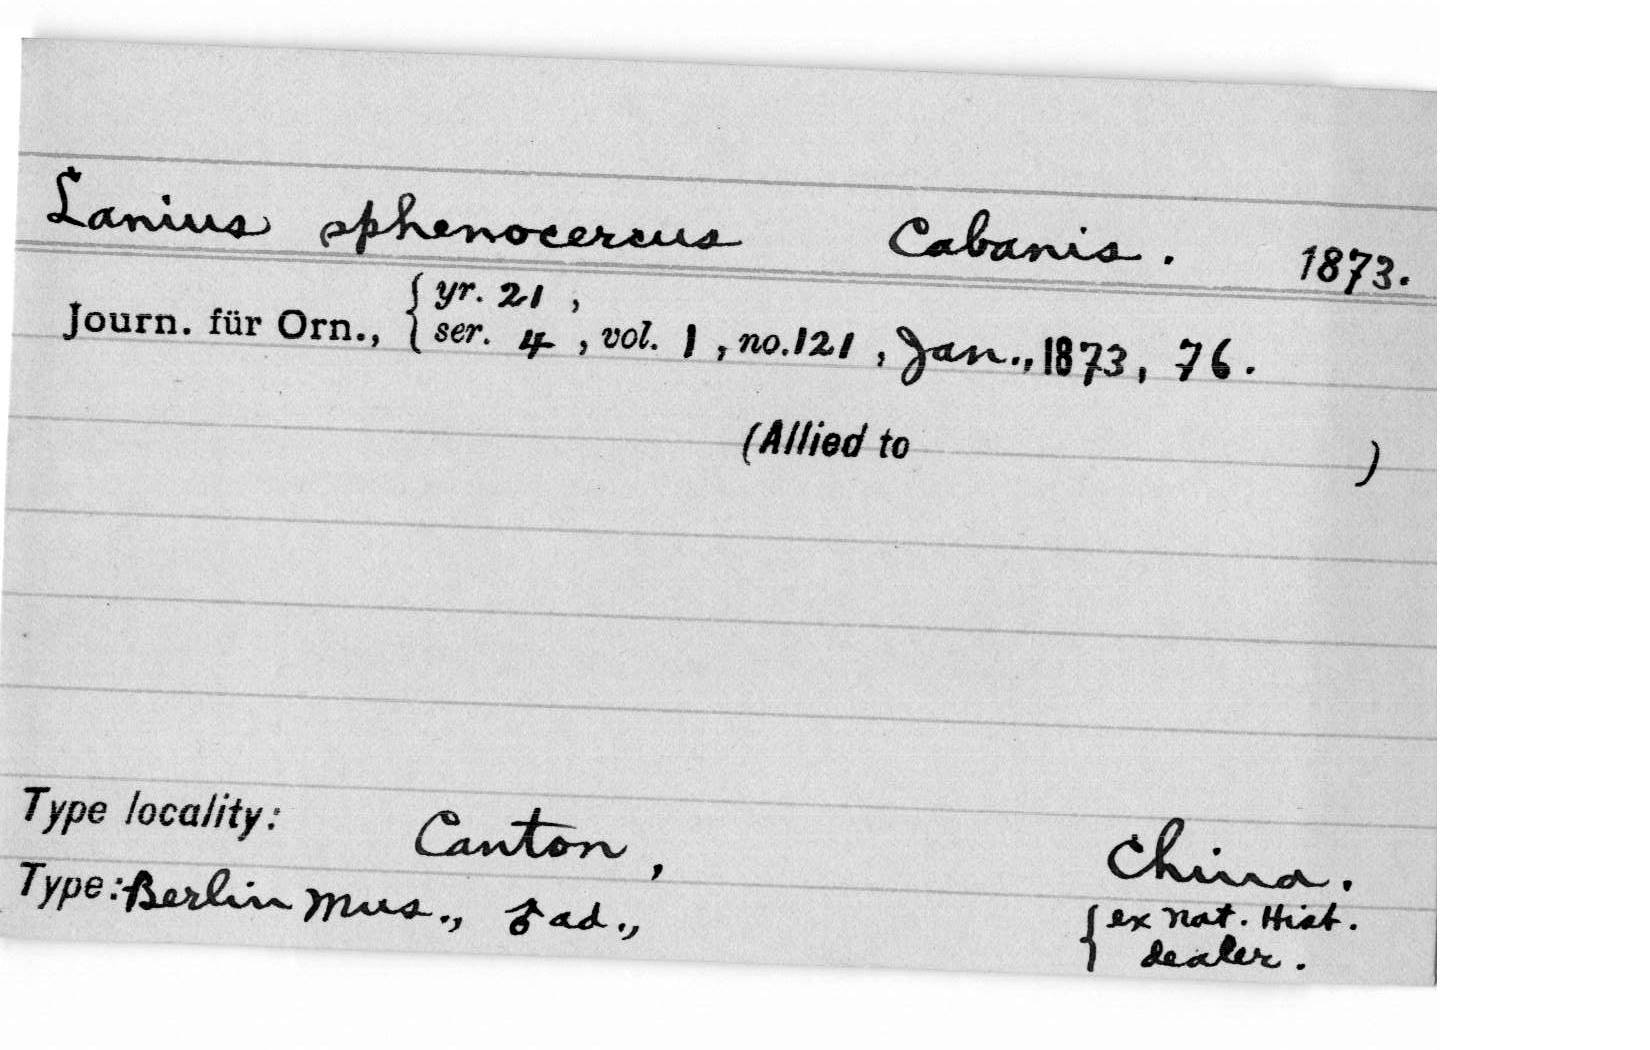 Lanius sphenocercus Cabanis. 1873.
Journ. für Orn., { yr. 21 ,
{ ser. 4 , vol. 1 , no. 121 , Jan., 1873, 76.
(Allied to )
Type locality: Canton, China.
Type: Berlin Mus., ♂ ad., { ex Nat. Hist.
dealer.